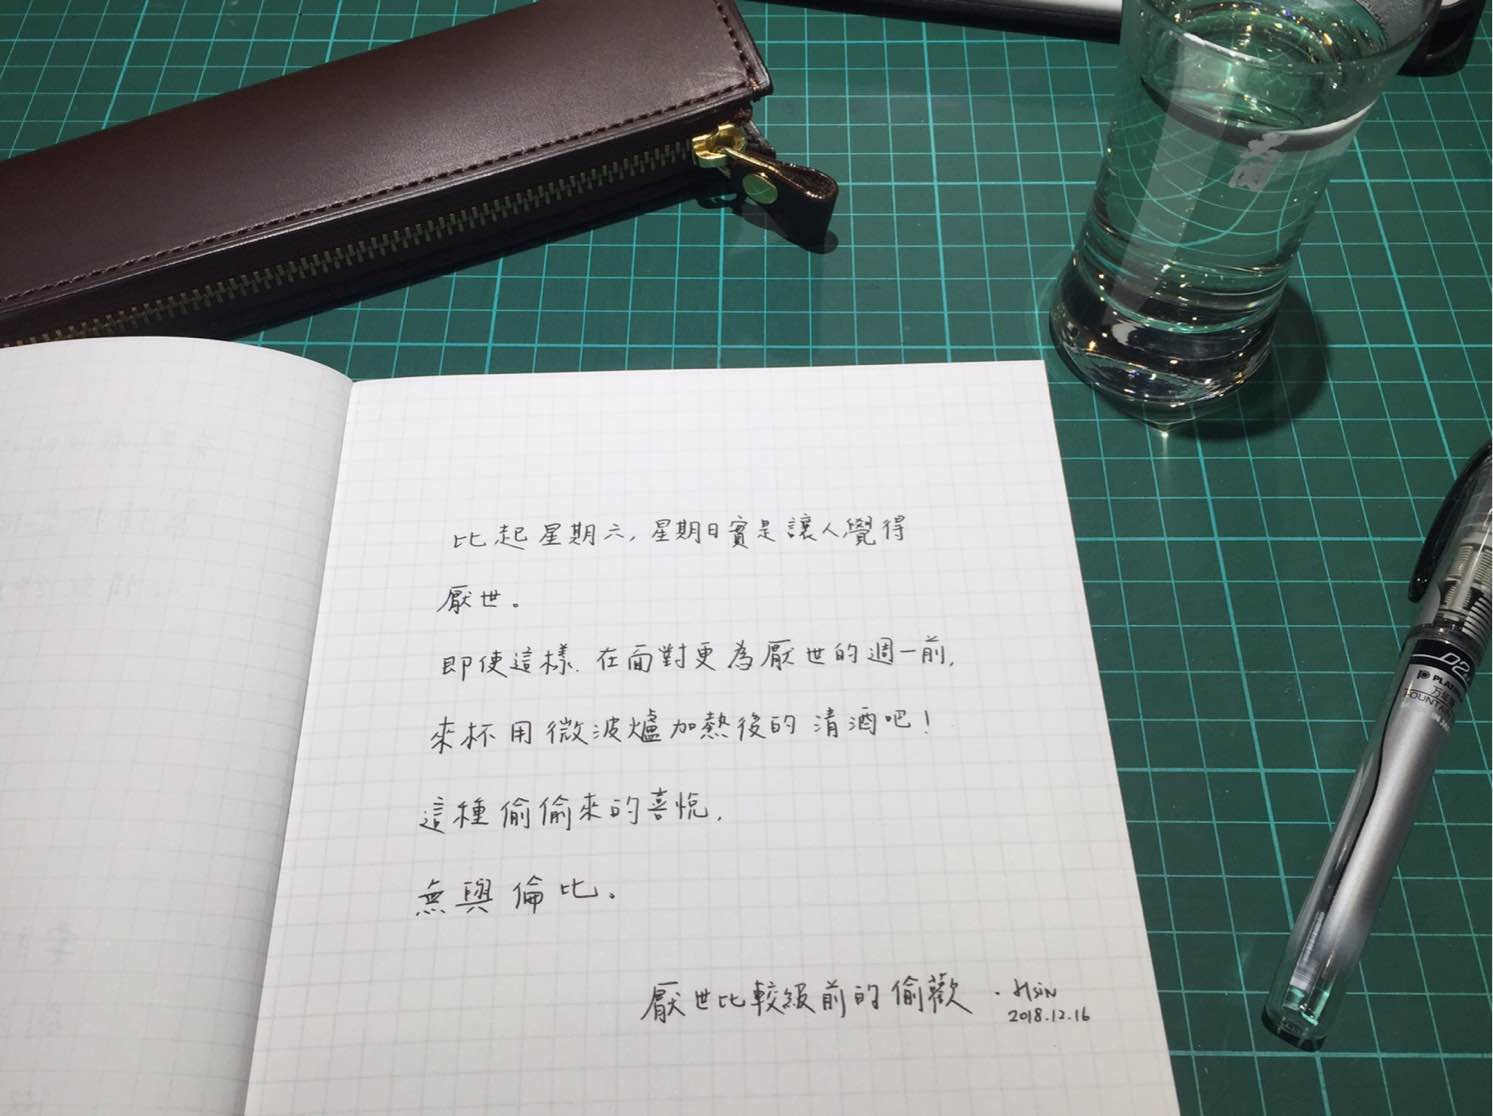 比起星期六,星期日實是讓人覺得
厭世。
即使這樣.在面對更為厭世的週一前,
來杯用微波爐加熱後的清酒吧!
這種偷偷來的喜悅,
無與倫比。
厭世比較級前的偷歡 . Hsin
2018.12.16